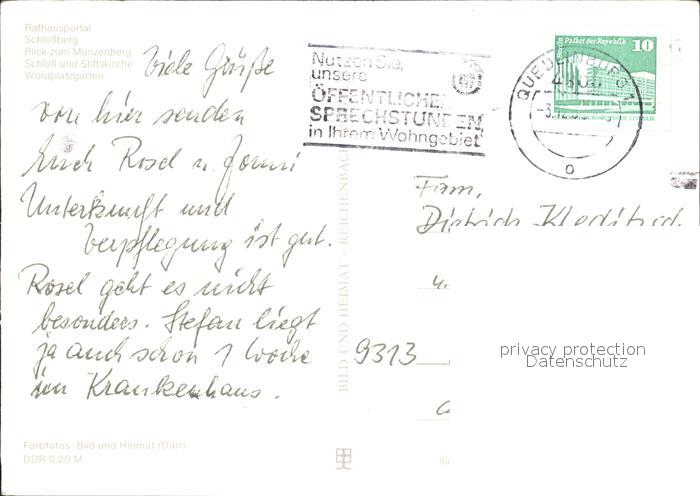 Rathausportal
Schloßberg
Blick zum Münzenberg
Schloß und Stiftskirche
Wordplatzgarten
Viele Grüße
von hier senden
Euch Rosel u.
Unterkunft und
Verpflegung ist gut.
Rosel geht es nicht
besonders. Stefan liegt
ja auch schon 1 Woche
im Krankenhaus.
Farbfotos: Bild und Heimat (Darr)
DDR 0,20 M
BILD UND HEIMAT · REICHENBACH
Nutzen Sie,
unsere
ÖFFENTLICHEN
SPRECHSTUNDEN
in Ihrem Wohngebiet
QUEDLINBURG 1
Palast der Republik
10
Fam.
Dietrich
9313
privacy protection
Datenschutz